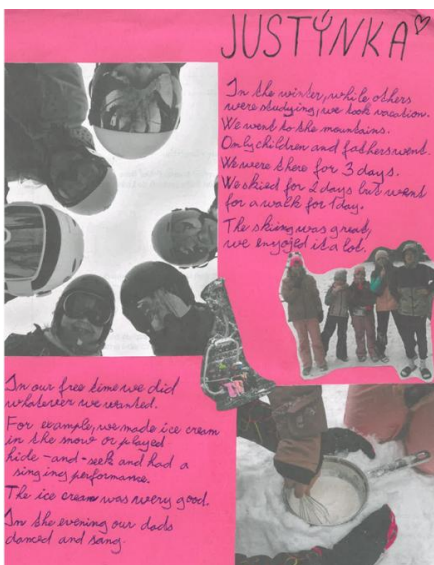 JUSTYNKA
In the winter, while others
were studying, we took vacation.
We went to the mountains.
Only children and fathers went.
We were there for 3 days.
We skied for 2 days but went
for a walk for 1 day.
The skiing was great,
we enjojed it a lot.
In our free time we did
whatever we wanted.
For example, we made ice cream
in the snow or played
hide-and-seek and had a
singing performance.
The ice cream was wery good.
In the evening our dads
danced and sang.